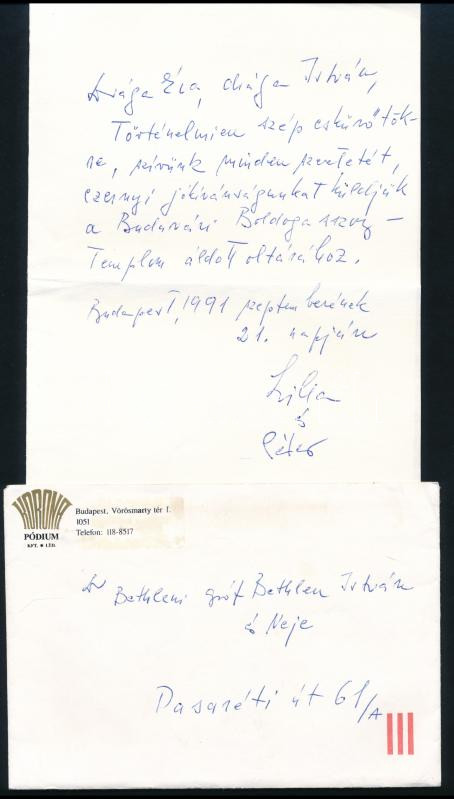 Drága Éva, drága István,
Történelmien szép esküvőtök-
re, szívünk minden szeretetét,
ezernyi jókívánságunkat küldjük
a Budavári Boldogasszony –
Templom áldott oltárához.
Budapest, 1991 szeptemberének
21. napján
Szilvia
és
Péter
KORONA
PÓDIUM
KFT. • LTD.
Budapest, Vörösmarty tér 1.
1051
Telefon: 118-8517
Dr Bethleni gróf Bethlen István
és Neje
Pasaréti út 61/A